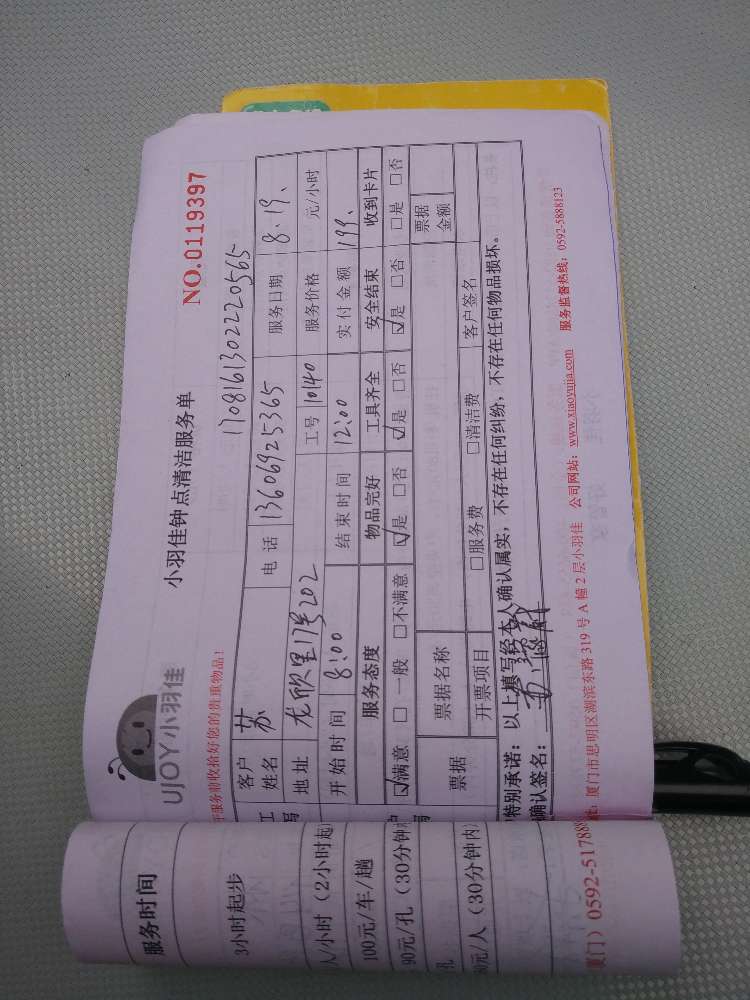 UJOY小羽佳
小羽佳钟点清洁服务单
NO.0119397
服务前收拾好您的贵重物品!
170816130222 0565
客户姓名 苏 电话 13606925365 服务日期 8.19、
地址 龙欣里17号202 工号 10140 服务价格 元/小时
开始时间 8:00 结束时间 12:00 实付金额 199、
服务态度 物品完好 工具齐全 安全结束 收到卡片
☑满意 □一般 □不满意 ☑是 □否 ☑是 □否 ☑是 □否 □是 □否
票据 票据名称 票据金额
开票项目 □服务费 □清洁费 客户签名
特别承诺:以上填写经本人确认属实,不存在任何纠纷,不存在任何物品损坏。
确认签名:
厦门市思明区湖滨东路319号A幢2层小羽佳 公司网站:www.xiaoyujia.com 服务监督热线:0592-5888123
服务时间
3小时起步
人/小时(2小时起
100元/车/趟
90元/孔(30分钟
孔
元/人(30分钟内
厦门)0592-51788